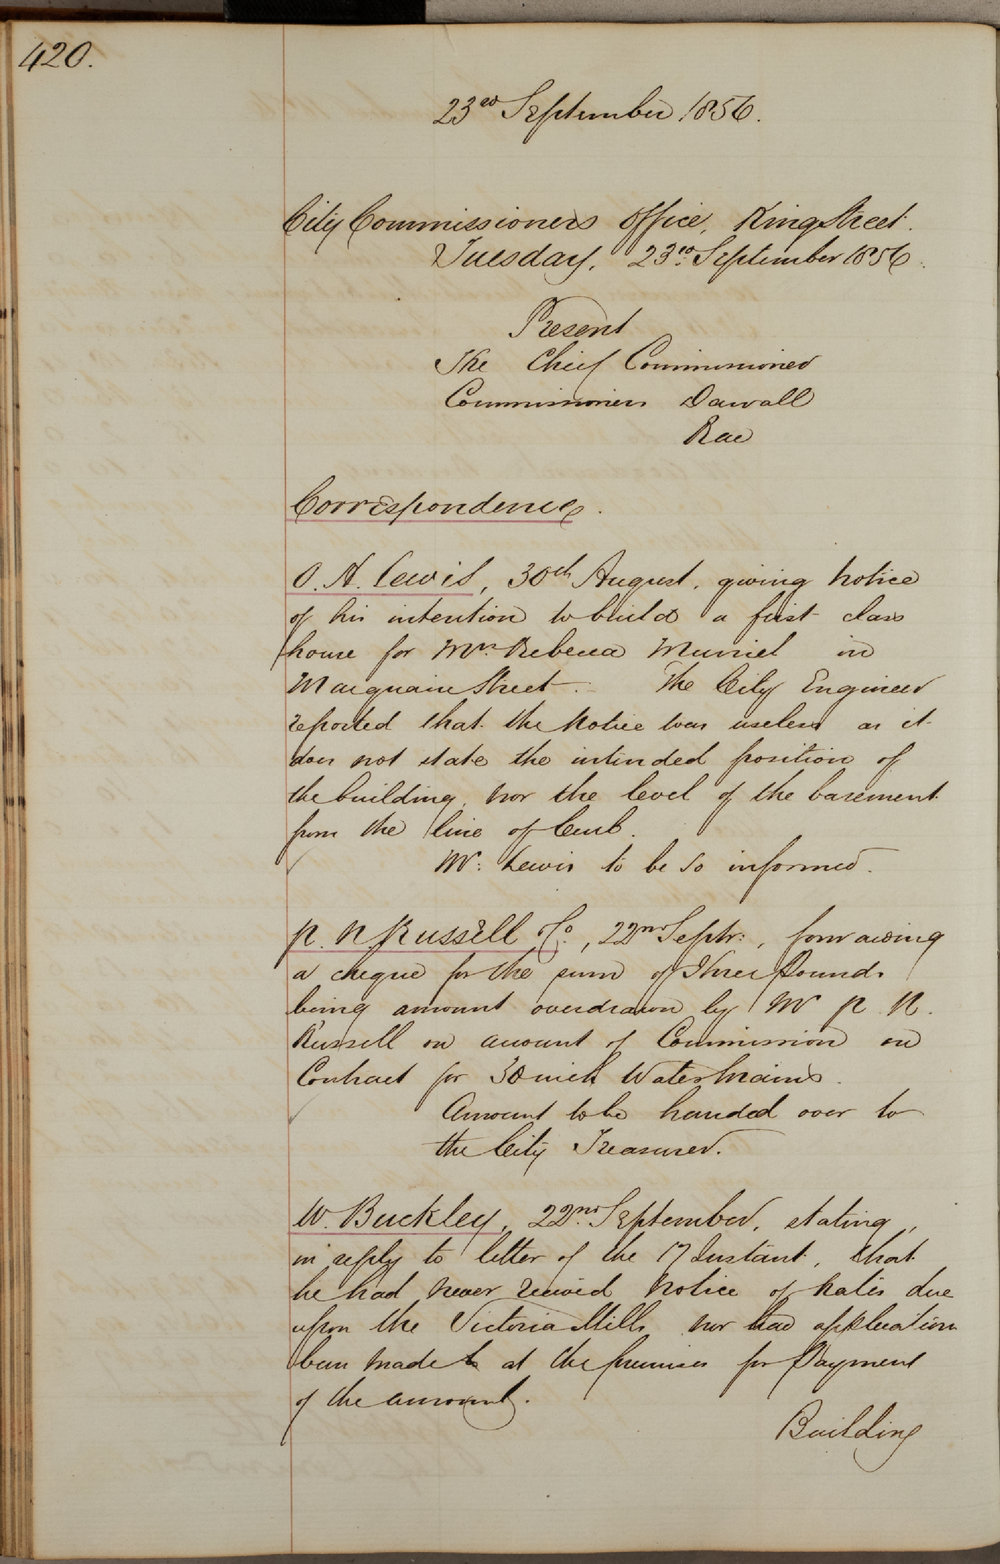 420.
23rd September 1856.
City Commissioners Office, King Street.
Tuesday, 23rd September 1856.
Present
The Chief Commissioner
Commissioners Darvall
Rae
Correspondence.
O. H. Lewis, 30th August, giving notice
of his intention to build a first class
house for Mrs. Rebecca Murriel in
Macquarie Street. The City Engineer
reported that the notice was useless as it
does not state the intended position of
the building, nor the level of the basement
from the line of Curb.
Mr. Lewis to be so informed.
P. N. Russell & Co., 22nd Septr., forwarding
a cheque for the sum of Three Pounds
being amount overdrawn by Mr P. N.
Russell on account of Commission on
Contract for 30 inch Water Mains.
Amount to be handed over to
the City Treasurer.
W. Buckley, 22nd September, stating,
in reply to letter of the 17 Instant, that
he had never received notice of rates due
upon the Victoria Mills nor had application
been made to at the premises for Payment
of the amount.
Building